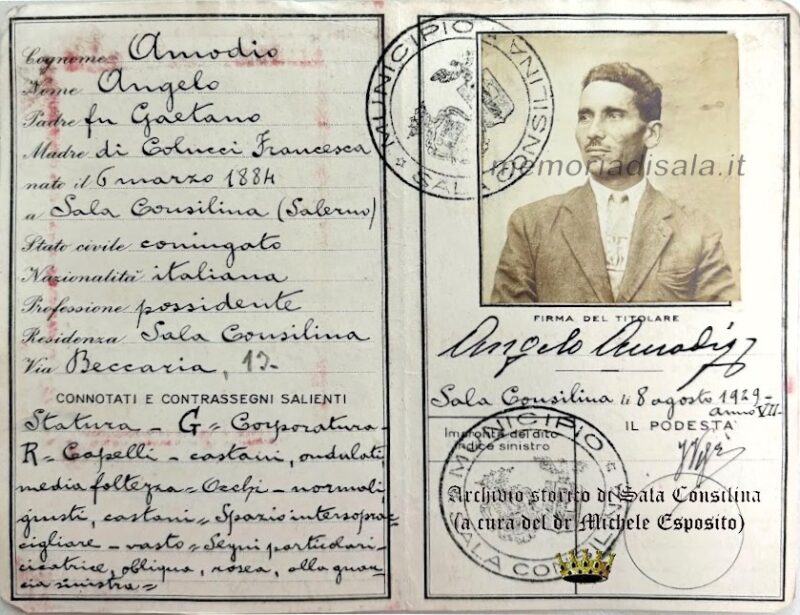 Cognome Amodio
Nome Angelo
Padre fu Gaetano
Madre di Colucci Francesca
nato il 6 marzo 1884
a Sala Consilina (Salerno)
Stato civile coniugato
Nazionalità italiana
Professione possidente
Residenza Sala Consilina
Via Beccaria, 15-
CONNOTATI E CONTRASSEGNI SALIENTI
Statura - G = Corporatura-
R = Capelli - castani, ondulati,
media foltezza = Occhi - normali
giusti, castani = Spazio intersopra=
cigliare - vasto = Segni particolari-
cicatrice, obliqua, rosea, alla guan=
cia sinistra =
MUNICIPIO
SALA CONSILINA
memoriadisala.it
FIRMA DEL TITOLARE
Angelo Amodio
Sala Consilina li 8 agosto 1929-
anno VII-
Impronta del dito
indice sinistro
IL PODESTÀ
MUNICIPIO
SALA CONSILINA
Archivio storico di Sala Consilina
(a cura del dr Michele Esposito)